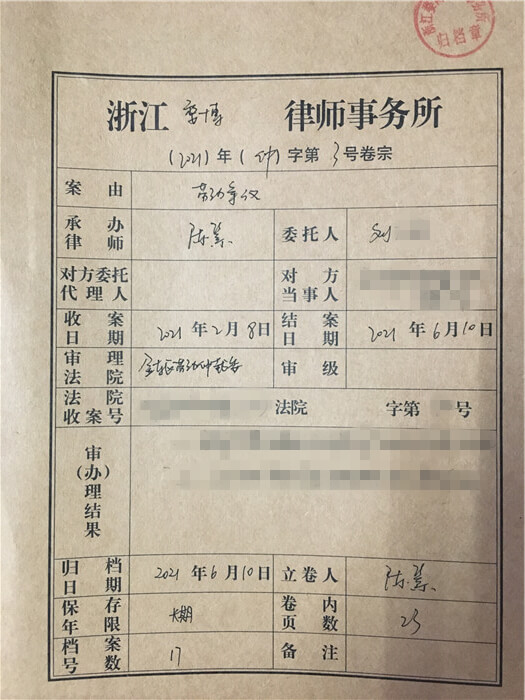 浙江 律师事务所
(2021)年(仲)字第3号卷宗
案由 劳动争议
承办律师 陈 委托人 刘
对方委托代理人 对方当事人
收案日期 2021年2月8日 结案日期 2021年6月10日
审理法院 金东区劳动仲裁委 审级
法院收案号 法院 字第 号
审(办)理结果
归档日期 2021年6月10日 立卷人 陈
保存年限 长期 卷内页数
档案号数 17 备注